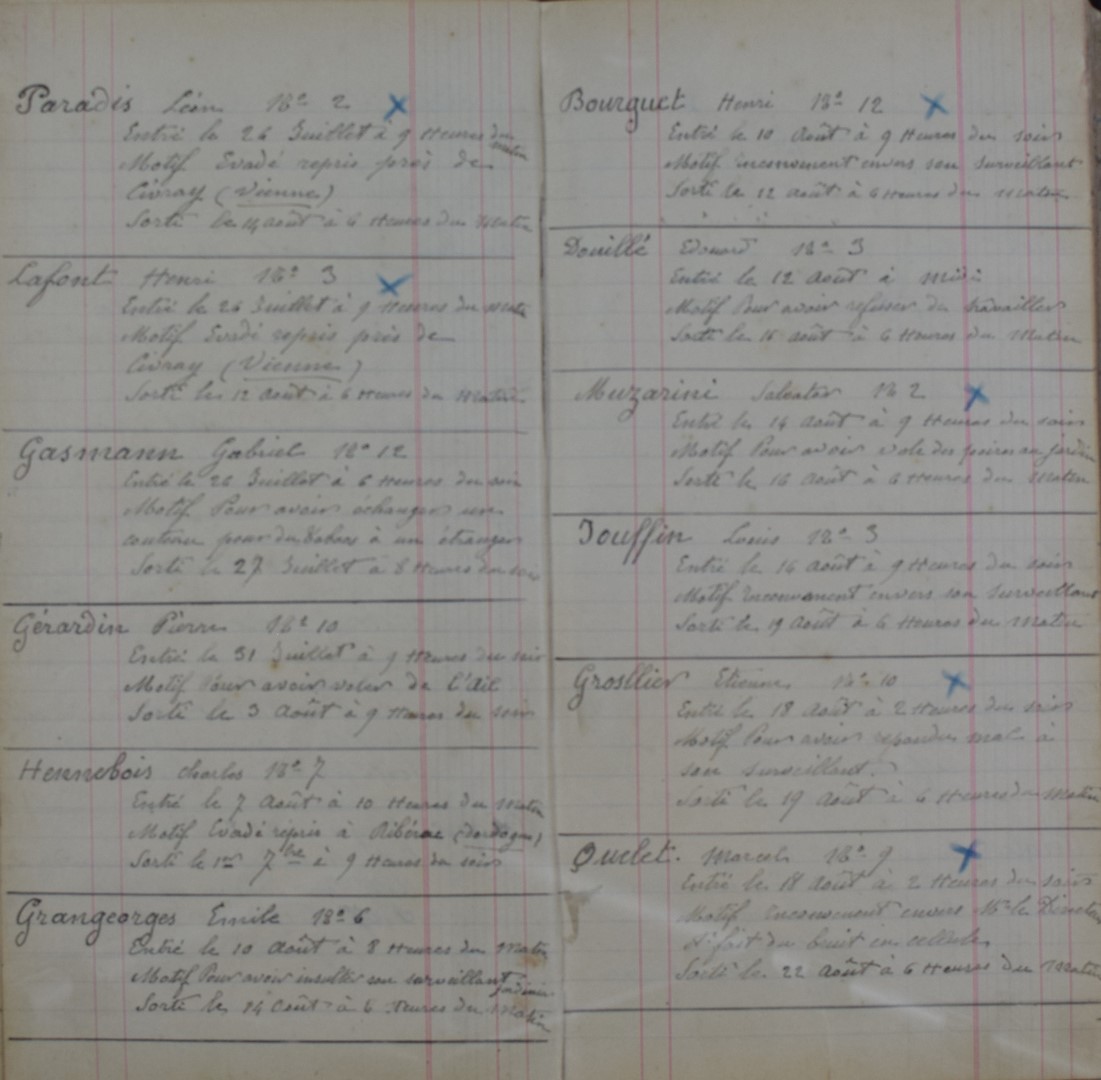 Paradis Léon 18e 2
Entré le 26 Juillet à 9 Heures du matin
Motif Evadé repris près de
Civray (Vienne)
Sorti le 14 août à 6 Heures du Matin
Lafont Henri 18e 3
Entré le 26 Juillet à 9 Heures du matin
Motif Evadé repris près de
Civray (Vienne)
Sorti le 12 août à 6 Heures du Matin
Gasmann Gabriel 18e 12
Entré le 26 Juillet à 6 Heures du soir
Motif Pour avoir échanger un
couteau pour du tabac à un étranger
Sorti le 27 Juillet à 8 Heures du soir
Gérardin Pierre 18e 10
Entré le 31 Juillet à 9 Heures du soir
Motif Pour avoir voler de l'Ail
Sorti le 3 Août à 9 Heures du soir
Hennebois Charles 18e 7
Entré le 7 Août à 10 Heures du Matin
Motif Evadé repris à Ribérac (Dordogne)
Sorti le 1er 7bre à 9 Heures du soir
Grangeorges Emile 18e 6
Entré le 10 Août à 8 Heures du Matin
Motif Pour avoir insulter son surveillant jardinier
Sorti le 14 Août à 6 Heures du Matin
Bourguet Henri 18e 12
Entré le 10 Août à 9 Heures du soir
Motif inconvenent envers son surveillant
Sorti le 12 août à 6 Heures du Matin
Douillé Edouard 18e 3
Entré le 12 Août à midi
Motif Pour avoir refuser de travailler
Sorti le 15 août à 6 Heures du Matin
Muzarini Salvator 18 2
Entré le 14 août à 9 Heures du soir
Motif Pour avoir volé des poires au jardin
Sorti le 16 Août à 6 Heures du Matin
Jouffin Louis 18e 3
Entré le 14 Août à 9 Heures du soir
Motif Inconvenent envers son Surveillant
Sorti le 19 Août à 6 Heures du Matin
Grosllier Etienne 18e 10
Entré le 18 Août à 2 Heures du soir
Motif Pour avoir repondre mal à
son surveillant.
Sorti le 19 Août à 6 Heures du Matin
Quelet. Marcel 18e 9
Entré le 18 Août à 2 Heures du soir
Motif Inconvenent envers Mr le Directeur
fait du bruit en cellule
Sorti le 22 Août à 6 Heures du Matin